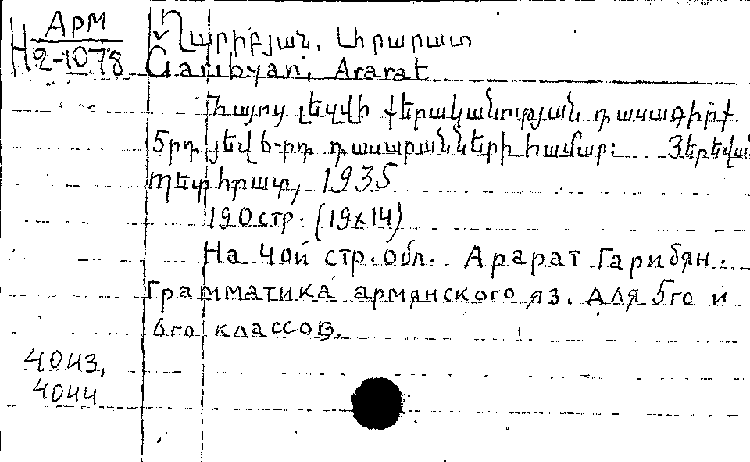 Арм
Н 2-1078
Ղարիբյան, Արարատ
Garibyan, Ararat
Հայոց լեզվի քերականության դասագիրք
5րդ յեվ 6-րդ դասարանների համար: Յերեվան
Պետհրատ, 1935
190 стр. (19x14)
На 4ой стр. обл. Арарат Гарибян.
Грамматика армянского яз. для 5го и
6го классов.
4043,
4044